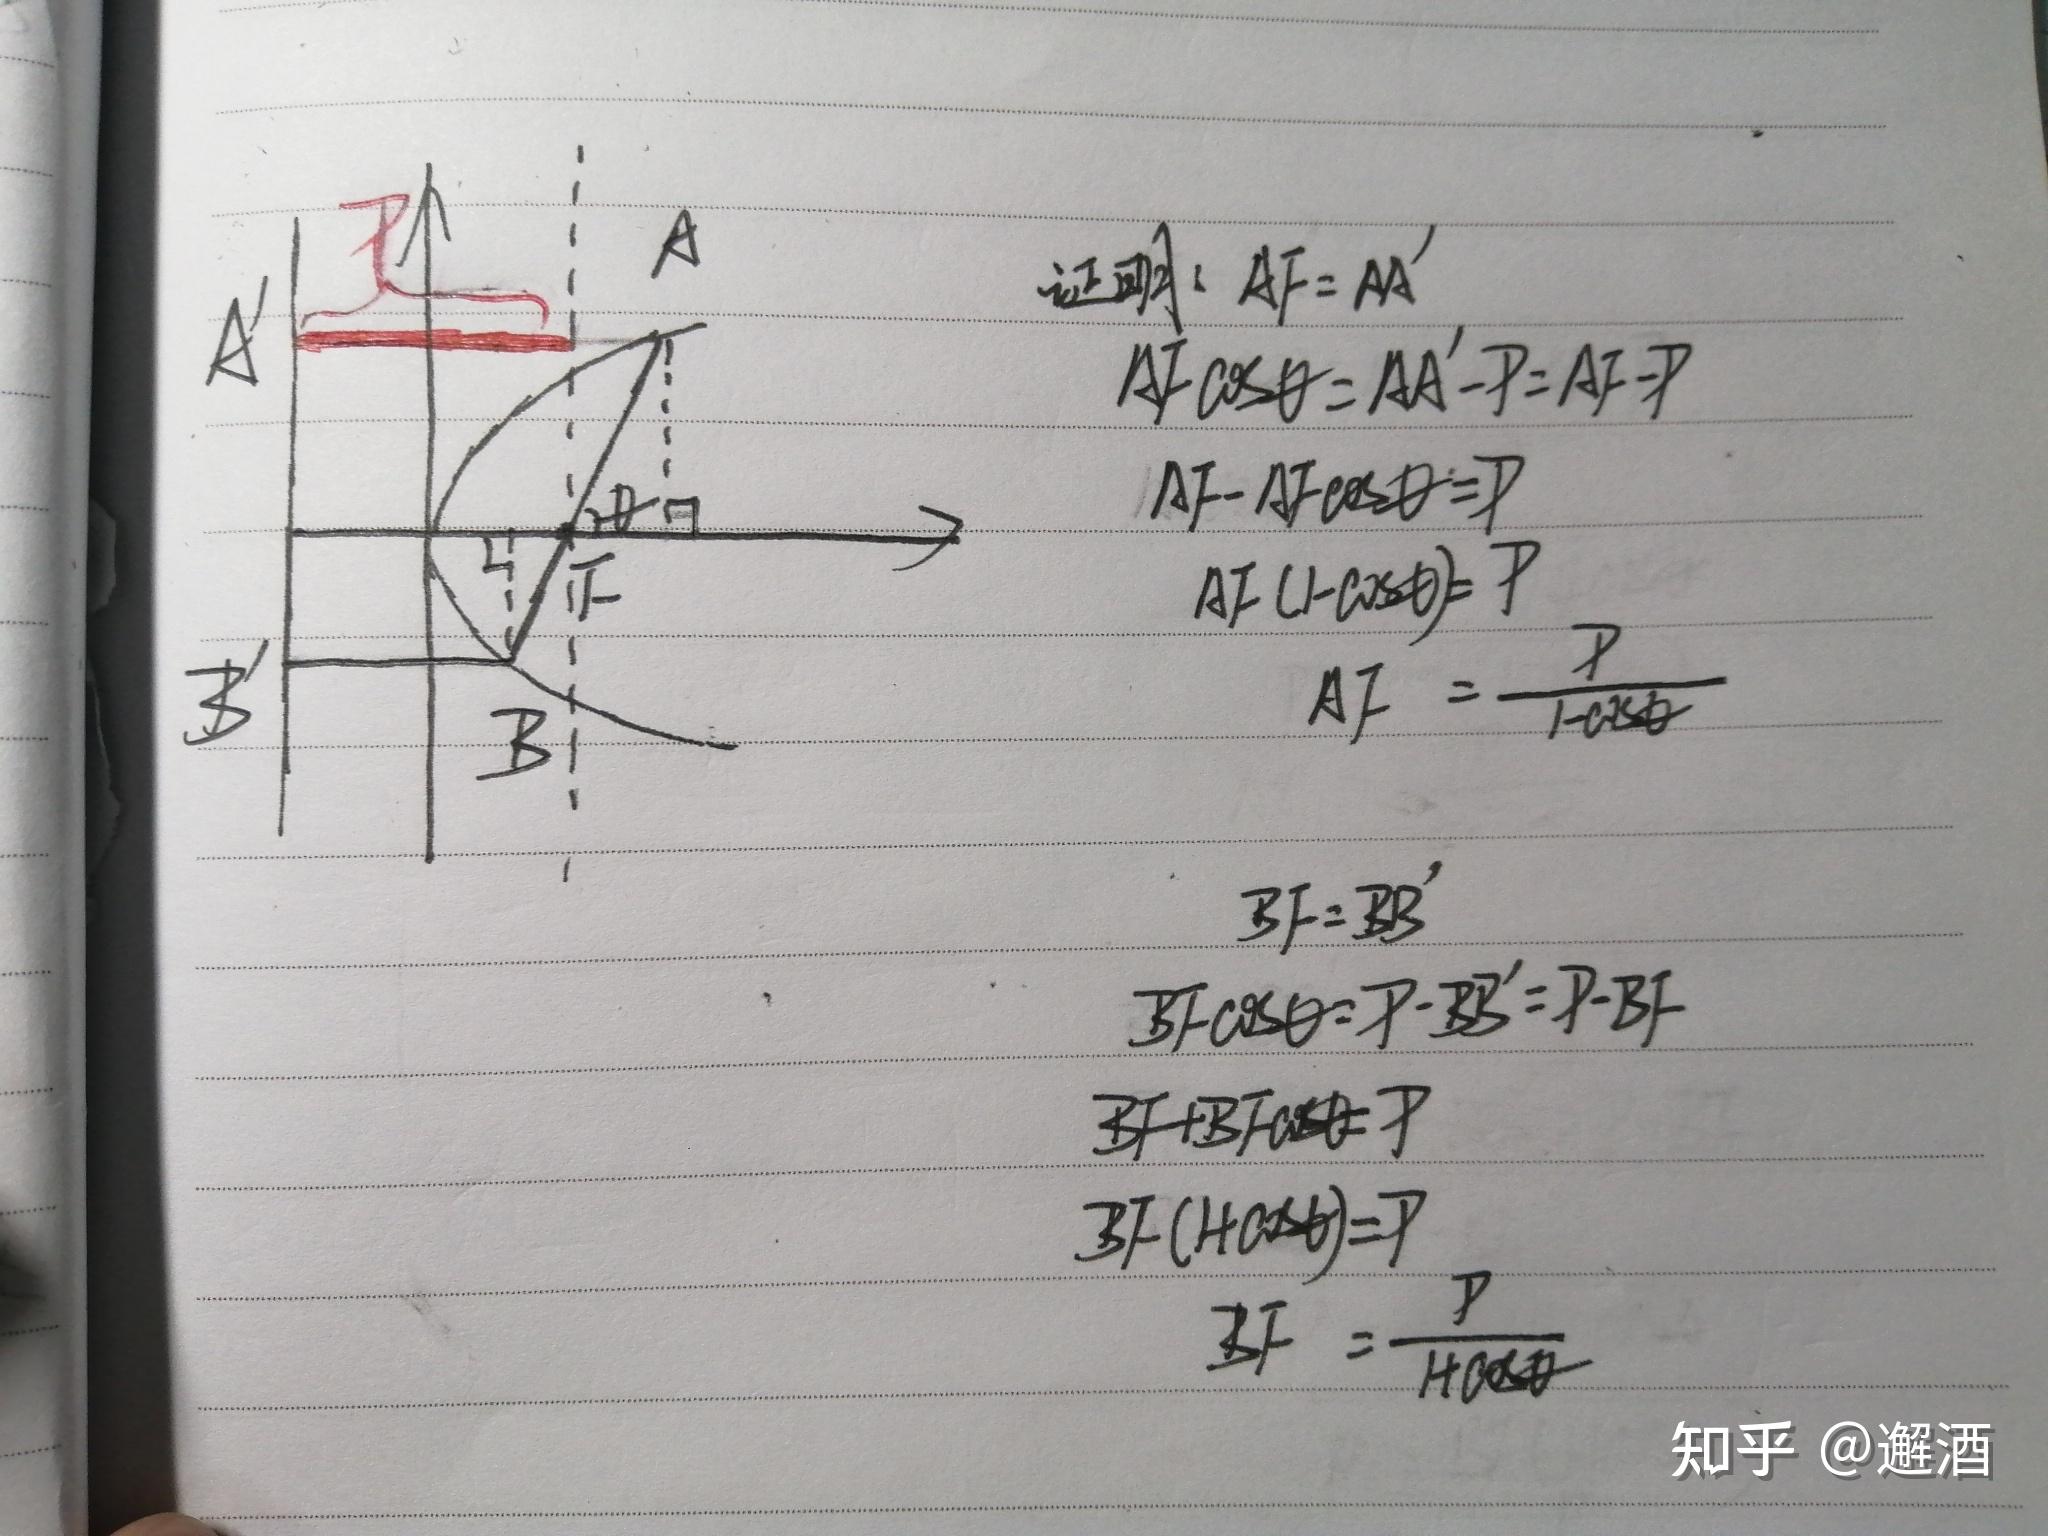 P
A
A'
θ
F
B'
B
证明: AF=AA'
AFcosθ=AA'-P=AF-P
AF-AFcosθ=P
AF(1-cosθ)=P
AF = P/(1-cosθ)
BF=BB'
BFcosθ=P-BB'=P-BF
BF+BFcosθ=P
BF(1+cosθ)=P
BF = P/(1+cosθ)
知乎 @邂酒